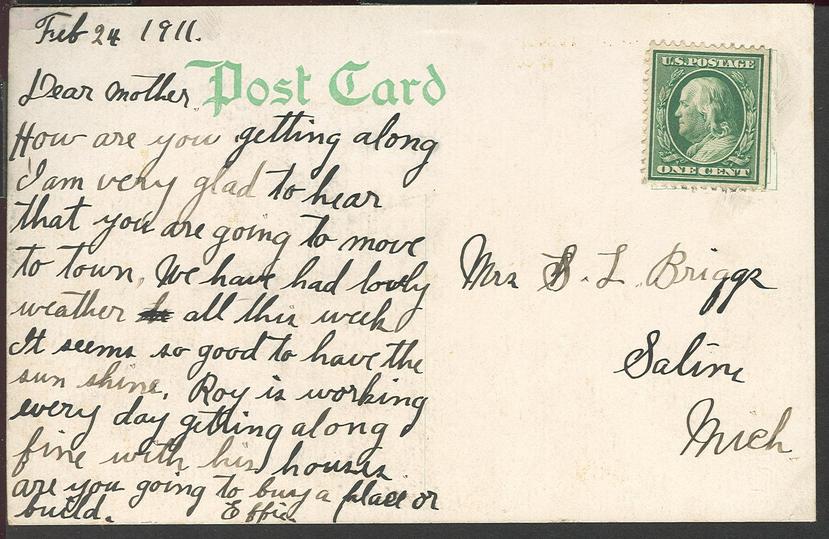 Feb 24 1911.
Post Card
Dear Mother
How are you getting along
I am very glad to hear
that you are going to move
to town. We have had lovly
weather all this week
It seems so good to have the
sun shine. Roy is working
every day getting along
fine with his houses
are you going to buy a place or
build. Effie
U.S. POSTAGE
ONE CENT
Mrs S. L. Briggs
Saline
Mich.